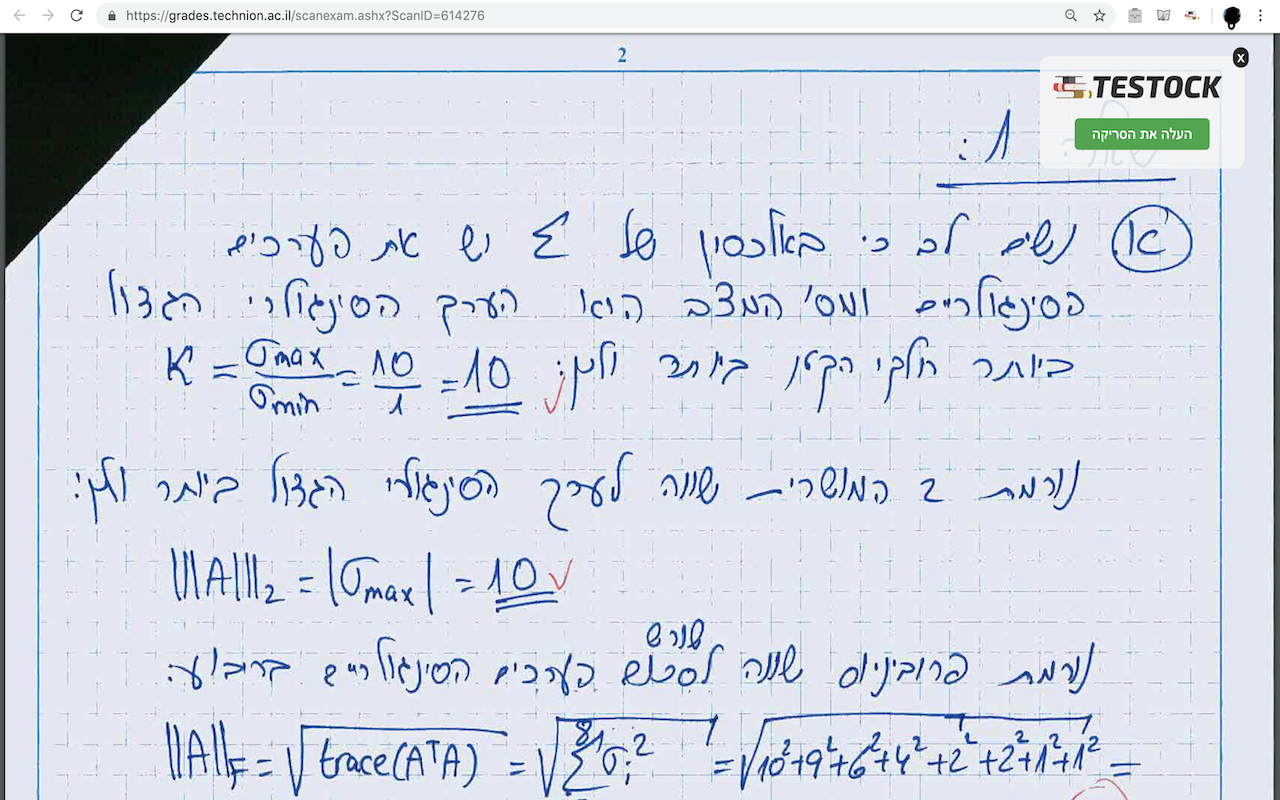 https://grades.technion.ac.il/scanexam.ashx?ScanID=614276
2
x
TESTOCK
העלה את הסריקה
שאלה 1:
א) נשים לב כי באלכסון של Σ יש את הערכים
הסינגולריים ומס' המצב הוא הערך הסינגולרי הגדול
ביותר חלקי הקטן ביותר ולכן: K = σmax/σmin = 10/1 = 10 ✓
נורמת 2 המושרית שווה לערך הסינגולרי הגדול ביותר ולכן:
|||A|||₂ = |σmax| = 10 ✓
שורש
נורמת פרוביניוס שווה לסכום הערכים הסינגולריים בריבוע:
||A||F = √trace(AᵀA) = √Σσᵢ² = √10²+9²+6²+4²+2²+2²+1²+1² =